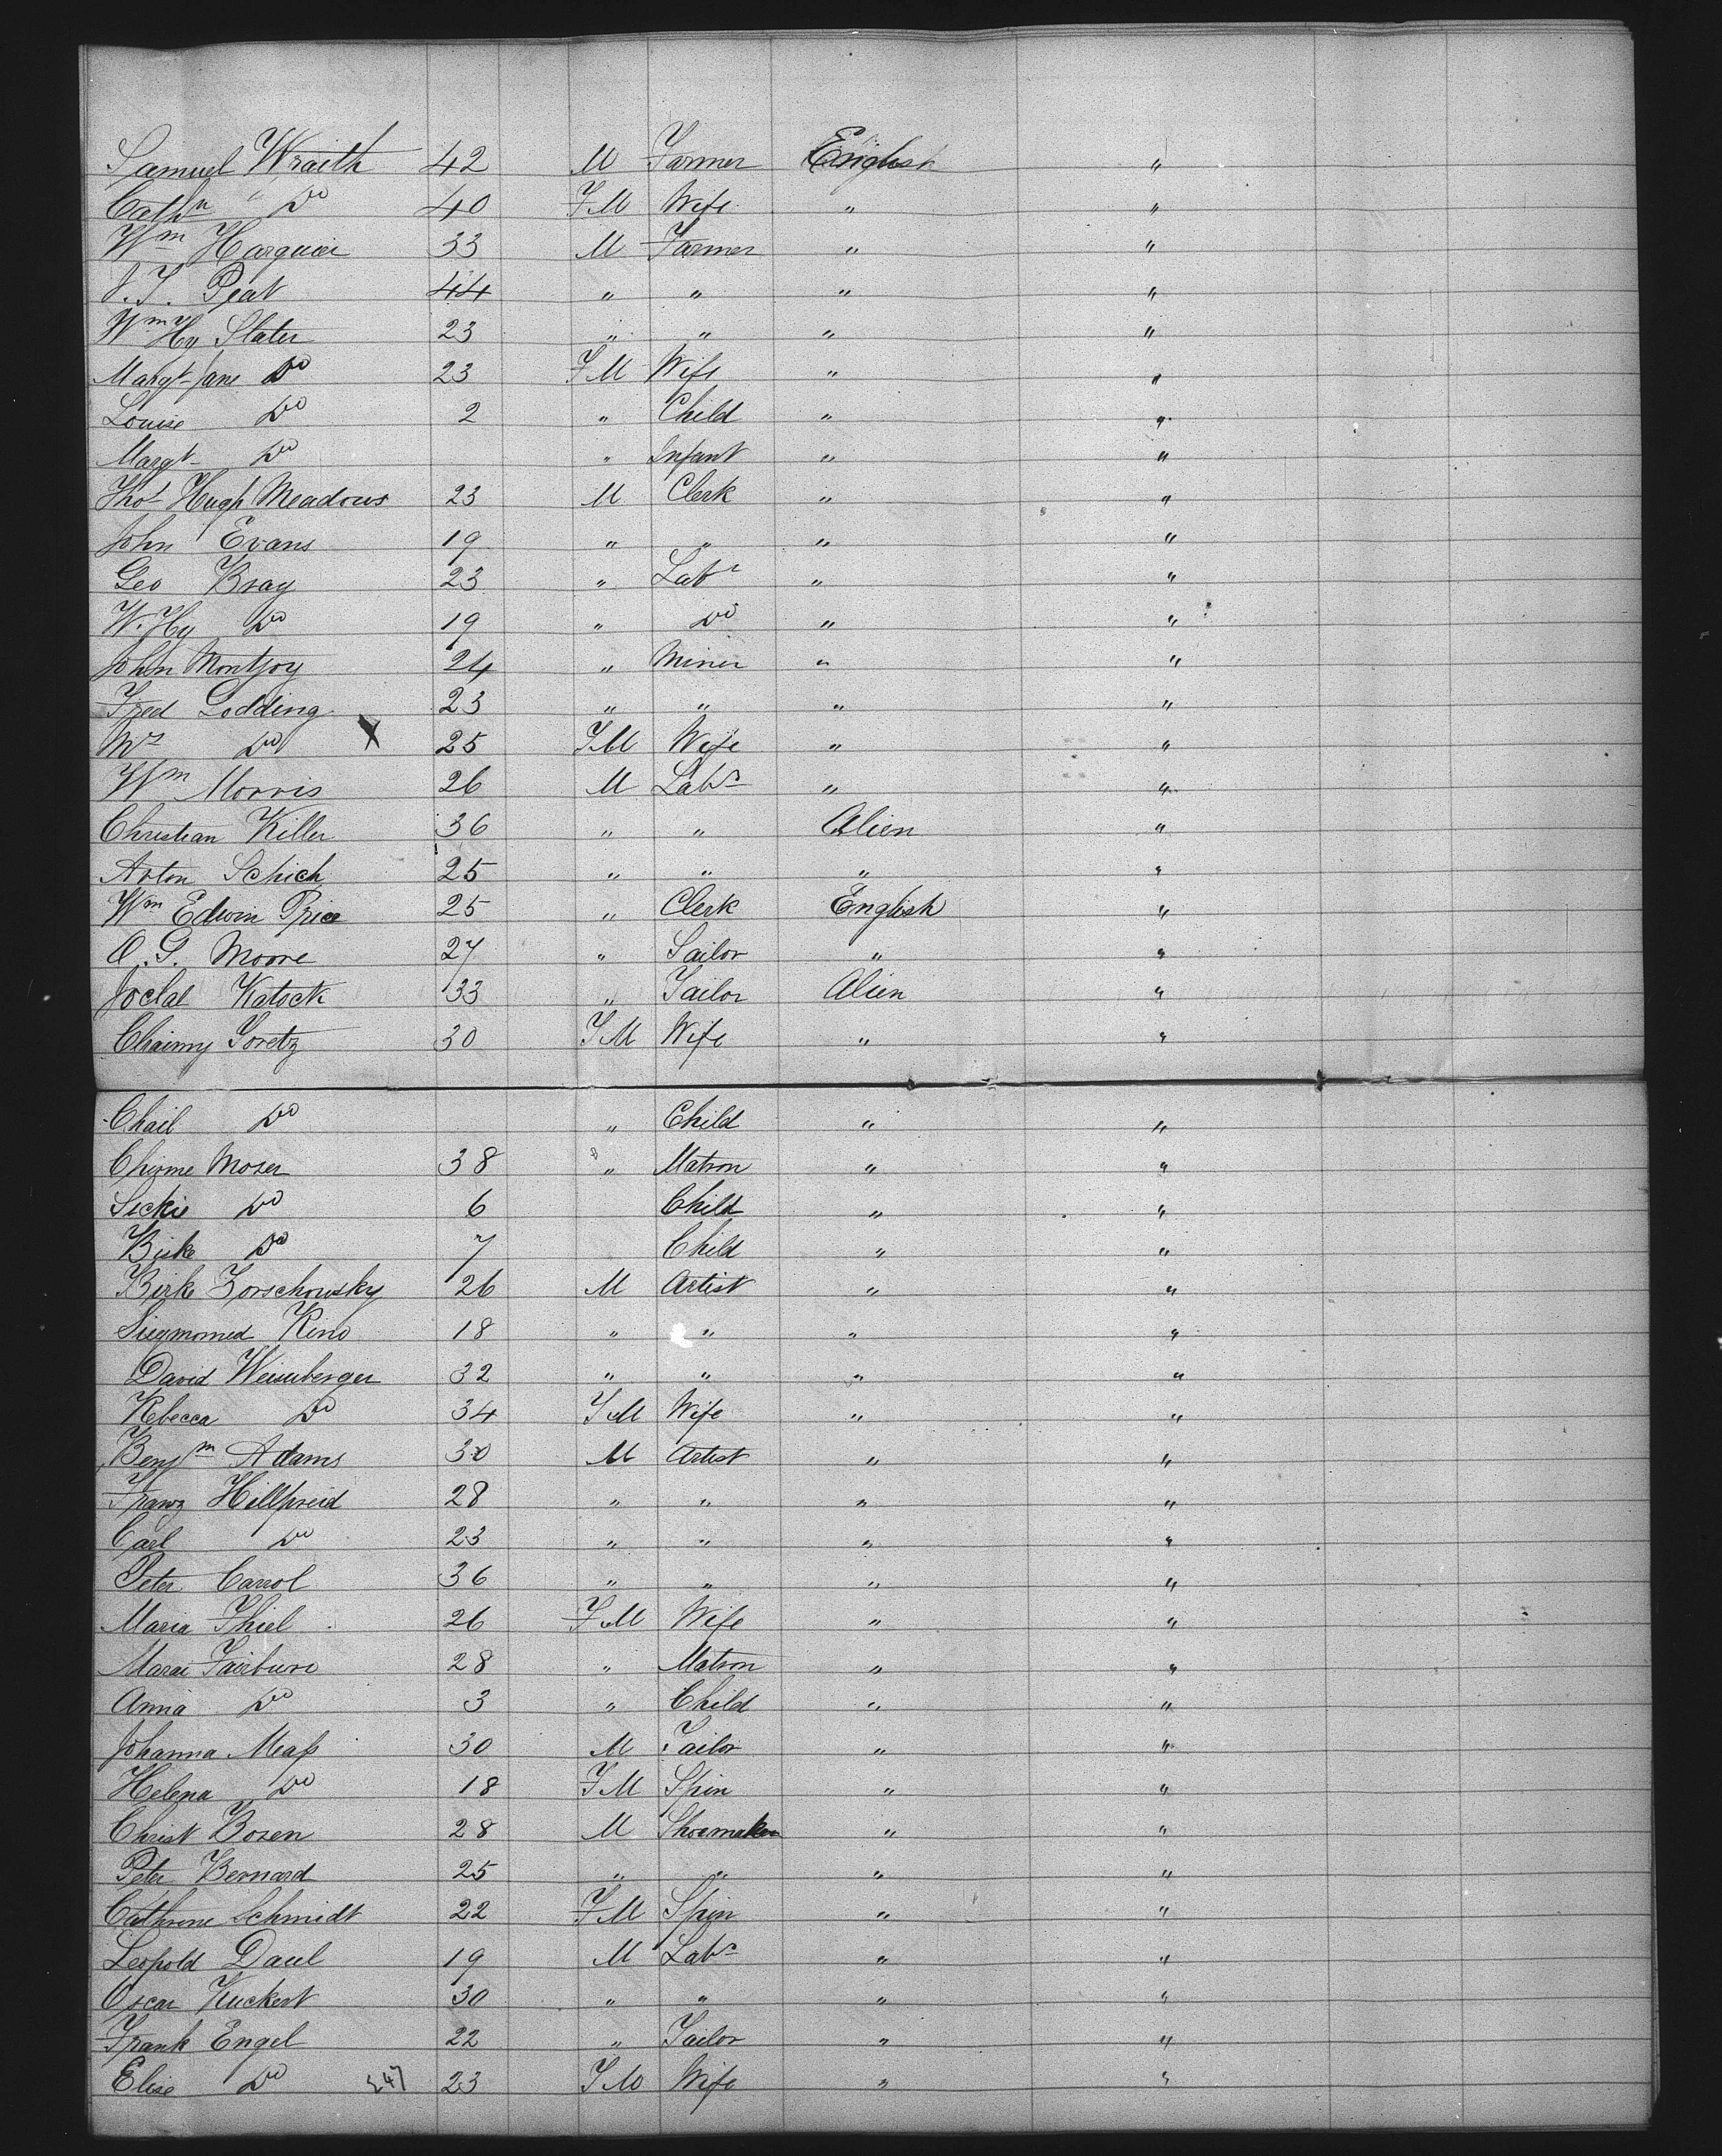 Samuel Wraith 42 M Farmer English "
Cathn " Do 40 FM Wife " "
Wm Harquier 33 M Farmer " "
J. T. Peat 44 " " " "
Wm Hy Slater 23 " " " "
Margt Jane Do 23 FM Wife " "
Louise Do 2 " Child " "
Margt Do " Infant " "
Thos Hugh Meadows 23 M Clerk " "
John Evans 19 " " " "
Geo Bray 23 " Labr " "
W. Hy Do 19 " Do " "
John Montjoy 24 " Miner " "
Fred Godding 23 " " " "
Mrs Do X 25 FM Wife " "
Wm Morris 26 M Labr " "
Christian Killer 36 " " Alien "
Arton Schich 25 " " " "
Wm Edwin Price 25 " Clerk English "
O. G. Moore 27 " Sailor " "
Joclal Katock 33 " Tailor Alien "
Chaimy Goretz 30 FM Wife " "
Chail Do " Child " "
Chirme Moser 38 " Matron " "
Seckie Do 6 Child " "
Biske Do 7 Child " "
Birke Zorschowsky 26 M Artist " "
Siegmomed Reno 18 " " " "
David Weisuberger 32 " " " "
Rebecca Do 34 FM Wife " "
Benjm Adams 30 M Artist " "
Franz Hillpreid 28 " " " "
Carl Do 23 " " " "
Peter Carrol 36 " " " "
Maria Thiel 26 FM Wife " "
Marai Fairburo 28 " Matron " "
Anna Do 3 " Child " "
Johanna Mass 30 M Tailor " "
Helena Do 18 FM Spin " "
Christ Bosen 28 M Shoemaker " "
Peter Bernard 25 " " " "
Cathrine Schmidt 22 FM Spin " "
Leopold Daul 19 M Labr " "
Oscar Kuckert 30 " " " "
Frank Engel 22 " Tailor " "
Elise Do 23 FM Wife " "